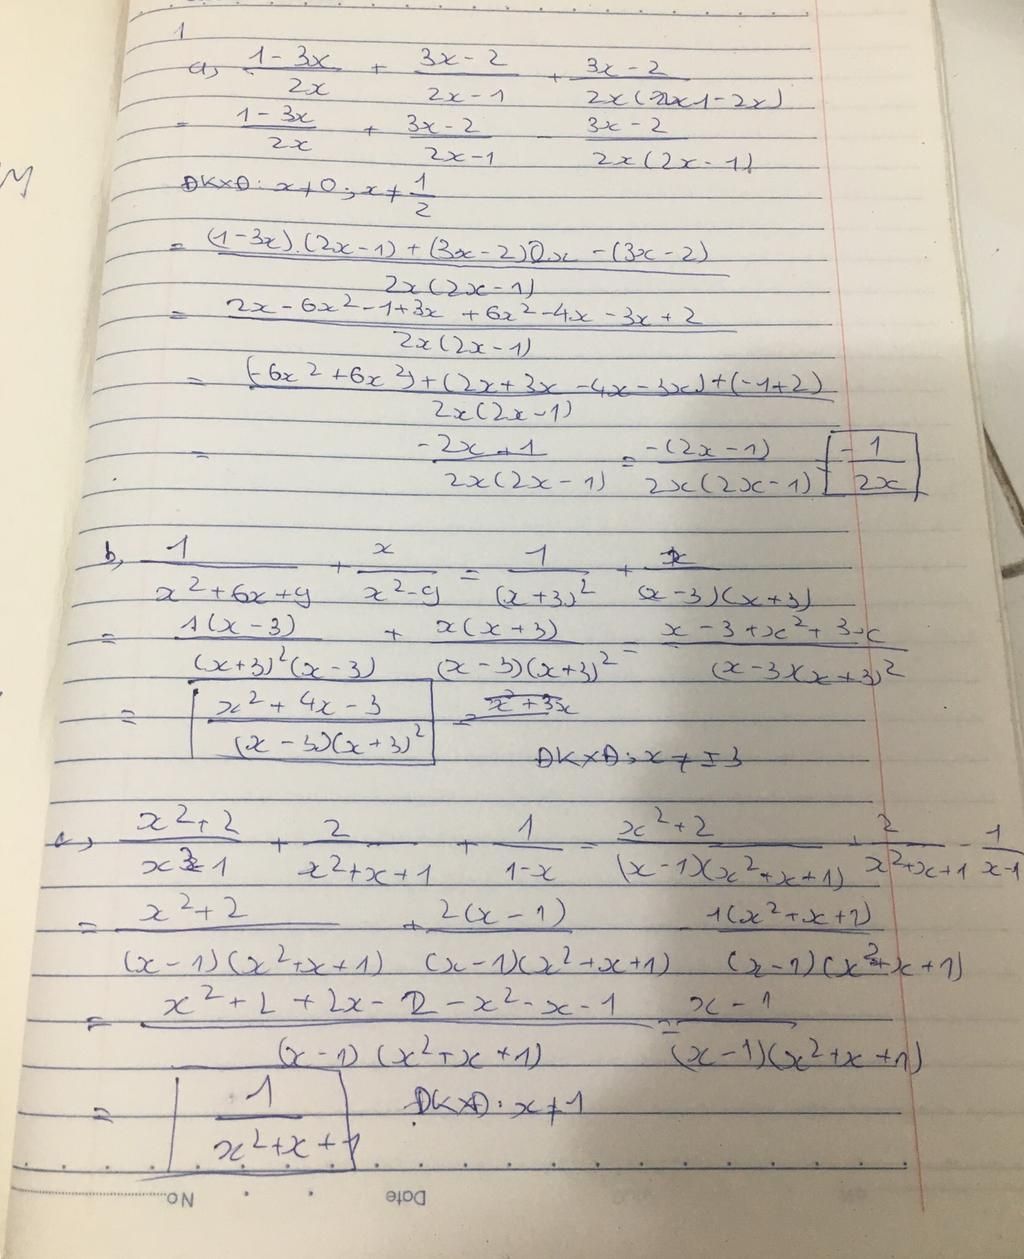 1
a, (1-3x)/(2x) + (3x-2)/(2x-1) + (3x-2)/(2x(1-2x))
= (1-3x)/(2x) + (3x-2)/(2x-1) - (3x-2)/(2x(2x-1))
ĐKXĐ: x≠0; x≠1/2
= ((1-3x).(2x-1)+(3x-2)2x-(3x-2))/(2x(2x-1))
= (2x-6x²-1+3x+6x²-4x-3x+2)/(2x(2x-1))
= ((-6x²+6x²)+(2x+3x-4x-3x)+(-1+2))/(2x(2x-1))
= (-2x+1)/(2x(2x-1)) = (-(2x-1))/(2x(2x-1)) = -1/(2x)
b, 1/(x²+6x+9) + x/(x²-9) = 1/(x+3)² + x/((x-3)(x+3))
= (1(x-3))/((x+3)²(x-3)) + (x(x+3))/((x-3)(x+3)²) = (x-3+x²+3x)/((x-3)(x+3)²)
= (x²+4x-3)/((x-3)(x+3)²) =
ĐKXĐ: x≠±3
c, (x²+2)/(x³-1) + 2/(x²+x+1) + 1/(1-x) = (x²+2)/((x-1)(x²+x+1)) + 2/(x²+x+1) - 1/(x-1)
= (x²+2)/((x-1)(x²+x+1)) + (2(x-1))/((x-1)(x²+x+1)) - (1(x²+x+1))/((x-1)(x²+x+1))
= (x²+2+2x-2-x²-x-1)/((x-1)(x²+x+1)) = (x-1)/((x-1)(x²+x+1))
= 1/(x²+x+1) ĐKXĐ: x≠1
No. Date